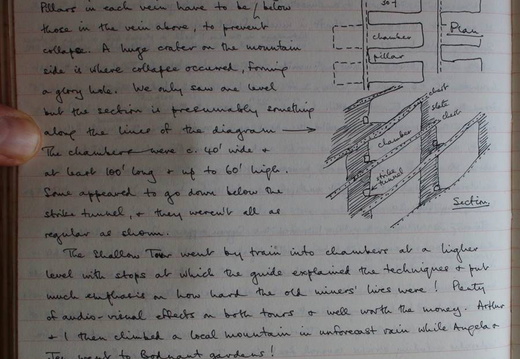 Pillars in each vein have to be / below
those in the vein above, to prevent
collapse. A huge crater on the mountain
side is where collapse occurred, forming
a glory hole. We only saw one level
but the section is presumably something
along the lines of the diagram →
The chambers were c. 40' wide &
at least 100' long & up to 60' high.
Some appeared to go down below the
strike tunnel, & they weren't all as
regular as shown.
30'
chamber
pillar
Plan
chert
slate
chert
chamber
strike
tunnel
Section
The Shallow Tour went by train into chambers at a higher
level with stops at which the guide explained the techniques & put
much emphasis on how hard the old miners' lives were! Plenty
of audio-visual effects on both tours & well worth the money. Arthur
& I then climbed a local mountain in unforecast rain while Angela &
went to Bodnant gardens!